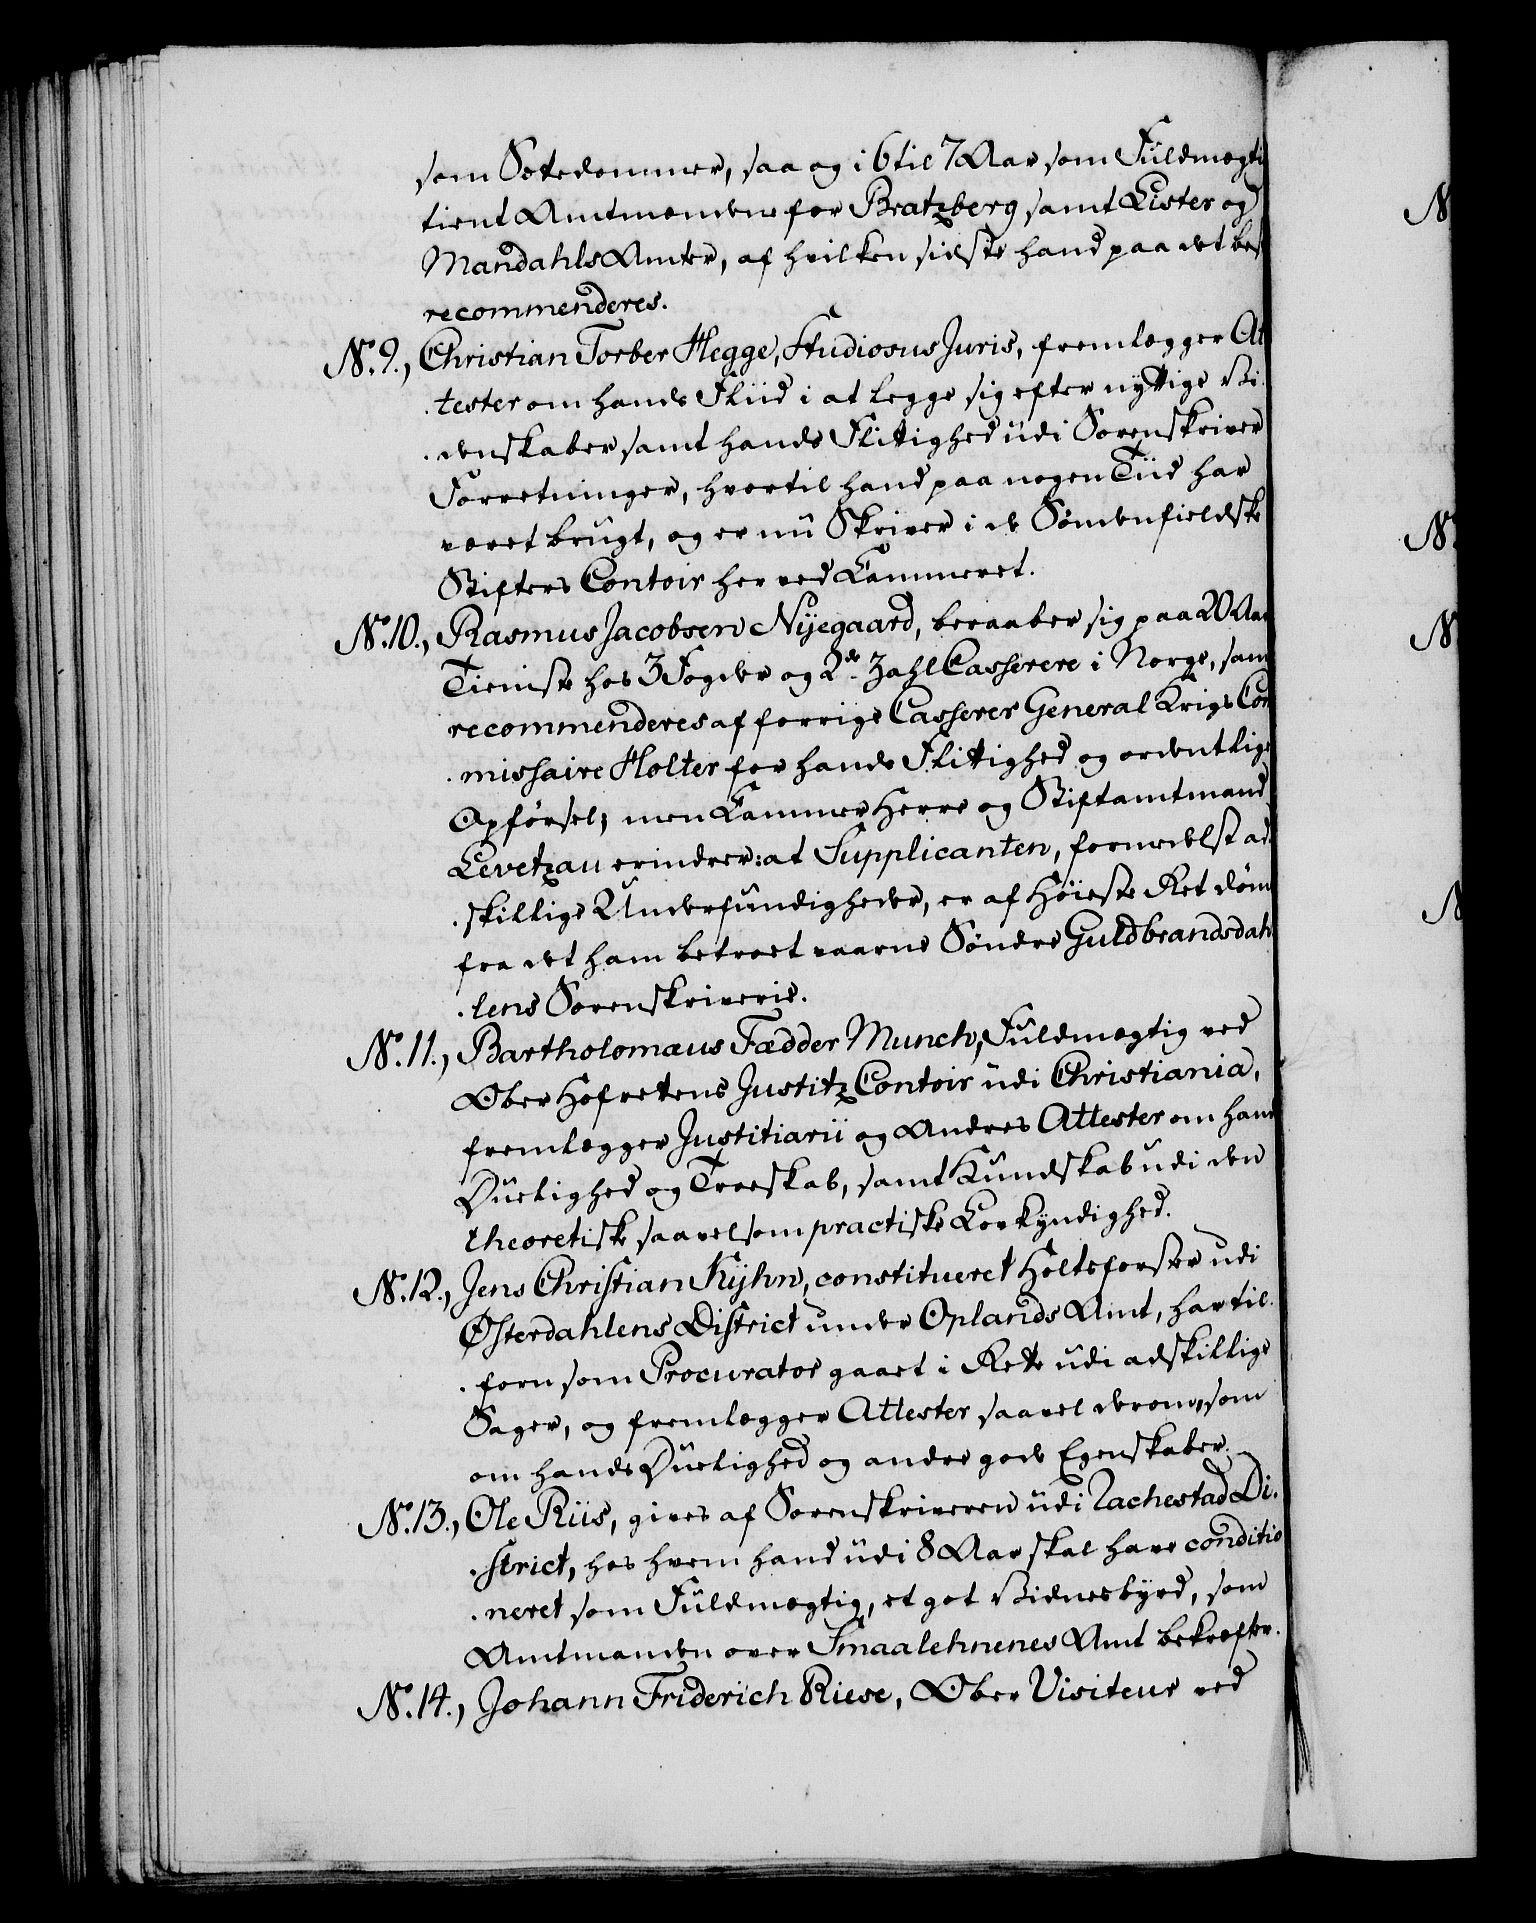 som Sættedommer, saa og i 6 til 7 Aar som Fuldmægti
tient Amtmændene for Bratzberg samt Lister og
Mandahls Amter, af hvilken sidste hand paa det bes
recommenderes.
No. 9., Christian Torber Hegge, Studiosus Juris, fremlægger At
tester om hands Fliid i at legge sig efter nyttige Vi
denskaber samt hands Flittighed udi Sorenskriver
Forretninger, hvortil hand paa nogen Tiid har
været brugt, og er nu Skriver i de Søndenfieldske
Stifters Contoir her ved Kammeret.
No. 10., Rasmus Jacobsen Nyegaard, beraaber sig paa 20 Aar
Tieniste hos 3 Fogder og 2de Zahl Casserere i Norge, sam
recommenderes af forrige Casserer General Krigs Com
missaire Holter for hands Flittighed og ordentlige
Opførsel; men Kammer Herre og Stiftamtmand
Levetzau erindrer: at Supplicanten, formedelst ad
skillige Underfundigheder, er af Høieste Ret døm
fra det ham betroet værne Søndre Guldbrandsdah
lens Sorenskriverie.
No. 11., Bartholomæus Fædder Munch, Fuldmægtig ved
Ober Hofrettens Justitz Contoir udi Christiania,
fremlægger Justitiarii og Andres Attester om hans
Duelighed og Troeskab, samt Kundskab udi den
theoretiske saavelsom practiske Lovkyndighed.
No. 12., Jens Christian Kyhn, constitueret Holtsforster udi
Østerdahlens District under Oplands Amt, har til
forn som Procurator gaaet i Rette udi adskillige
Sager, og fremlægger Attester saavel derom, som
om hands Duelighed og andre gode Egenskaber.
No. 13., Ole Riis, gives af Sorenskriveren udi Rachestad Di
strict, hos hvem hand udi 8 Aar skal have conditio
neret som Fuldmægtig, et got Vidnesbyrd, som
Amtmanden over Smaalehnenes Amt bekræfter.
No. 14., Johann Friderich Riese, Ober Visiteur ved